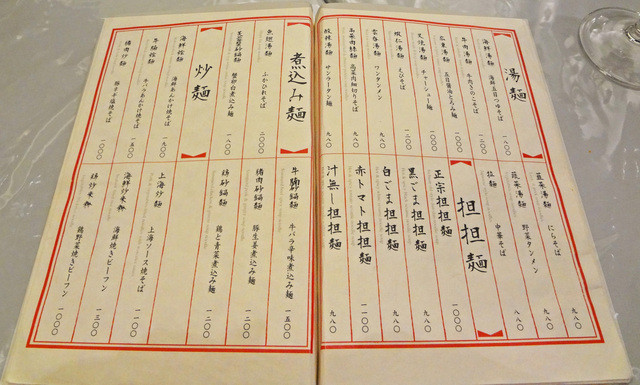 湯麺
海鮮湯麺 海鮮五目つゆそば 一八〇〇
牛肉湯麺 牛肉きのこそば 一二〇〇
広東湯麺 五目醤油とろみ麺 一〇〇〇
叉焼湯麺 チャーシュー麺
蝦仁湯麺 えびそば
雲呑湯麺 ワンタンメン
高菜肉絲麺 高菜肉細切りそば
酸辣湯麺 サンラータン麺 一〇〇〇
韮菜湯麺 にらそば 九八〇
蔬菜湯麺 野菜タンメン 九八〇
拉麺 中華そば 八八〇
担担麺
正宗担担麺 一〇〇〇
黒ごま担担麺 九八〇
白ごま担担麺 九八〇
赤トマト担担麺 一一〇〇
汁無し担担麺 九八〇
煮込み麺
魚翅湯麺 ふかひれそば 二〇〇〇
蟹卵白煮込み麺 一八〇〇
牛腩砂鍋麺 牛バラ辛味煮込み麺 一五〇〇
猪肉砂鍋麺 豚生姜煮込み麺 一二〇〇
鶏砂鍋麺 鶏と青菜煮込み麺 一二〇〇
炒麺
海鮮燴麺 海鮮あんかけ焼そば 一九〇〇
牛腩燴麺 牛バラあんかけ焼そば 一五〇〇
猪肉炒麺 豚ネギ塩焼そば 一〇〇〇
上海炒麺 上海ソース焼そば 一〇〇〇
海鮮炒米粉 海鮮焼きビーフン 一三〇〇
鶏炒米粉 鶏野菜焼きビーフン 一〇〇〇